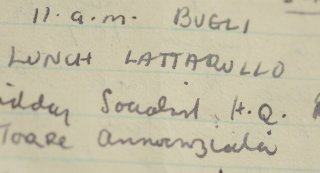 11. a.m. BUGLI
LUNCH LATTARULLO
idday Socialist H.Q.
Torre Annunziata